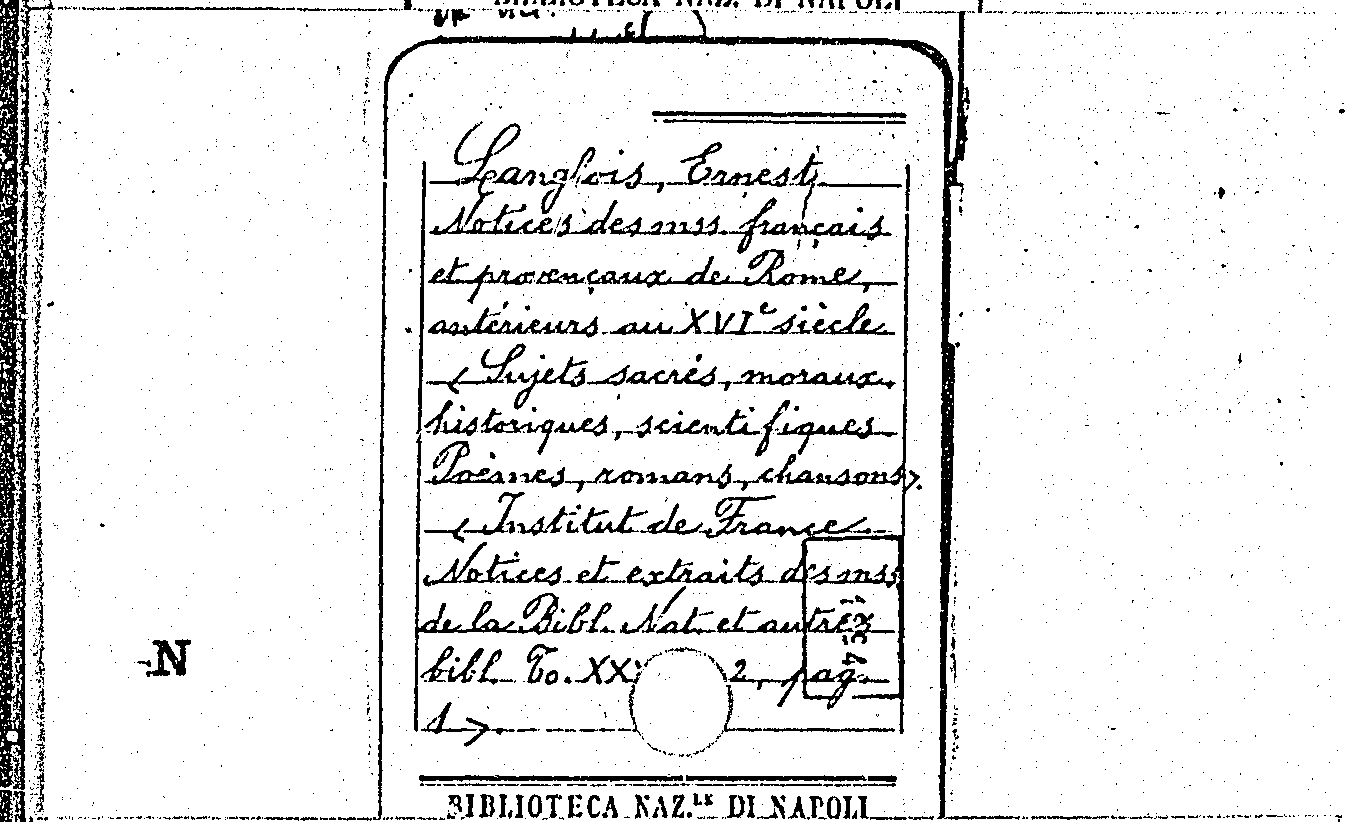 BIBLIOTECA NAZ. DI NAPOLI
Langlois, Ernest
Notices des mss. français
et provençaux de Rome,
antérieurs au XVIe siècle
< Sujets sacrés, moraux.
historiques, scientifiques
Poèmes, romans, chansons>.
< Institut de France.
Notices et extraits des mss
de la Bibl. Nat. et autres
bibl. To. XX 2, pag.
1 >.
N
BIBLIOTECA NAZ.LE DI NAPOLI